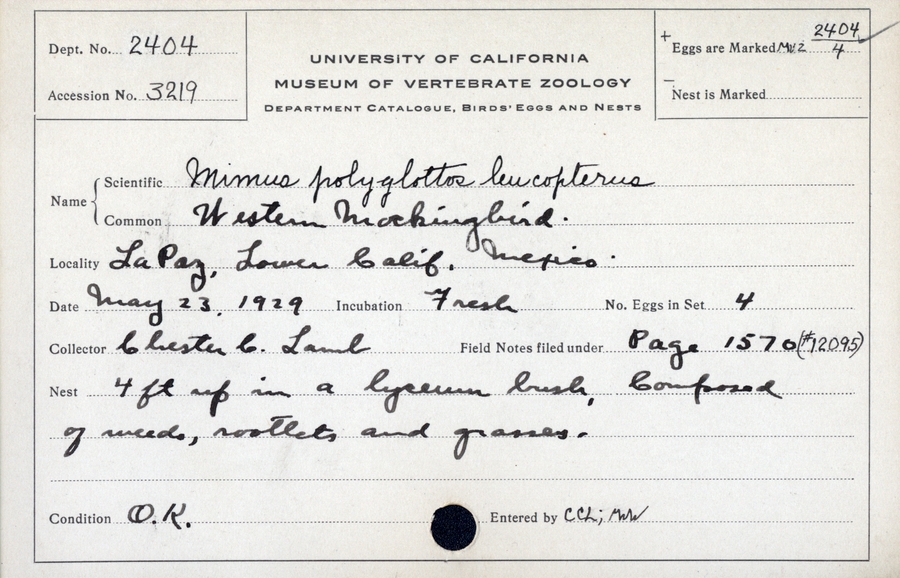 Dept. No. 2404
Accession No. 3219
UNIVERSITY OF CALIFORNIA
MUSEUM OF VERTEBRATE ZOOLOGY
DEPARTMENT CATALOGUE, BIRDS' EGGS AND NESTS
+ Eggs are Marked MVZ 2404/4
− Nest is Marked
Name { Scientific Mimus polyglottos leucopterus
Common Western Mockingbird.
Locality La Paz, Lower Calif. Mexico.
Date May 23, 1929 Incubation Fresh No. Eggs in Set 4
Collector Chester C. Lamb Field Notes filed under Page 1570 (#12095)
Nest 4 ft up in a lyceum bush, Composed
of weeds, rootlets and grasses.
Condition O.K. Entered by CCL;